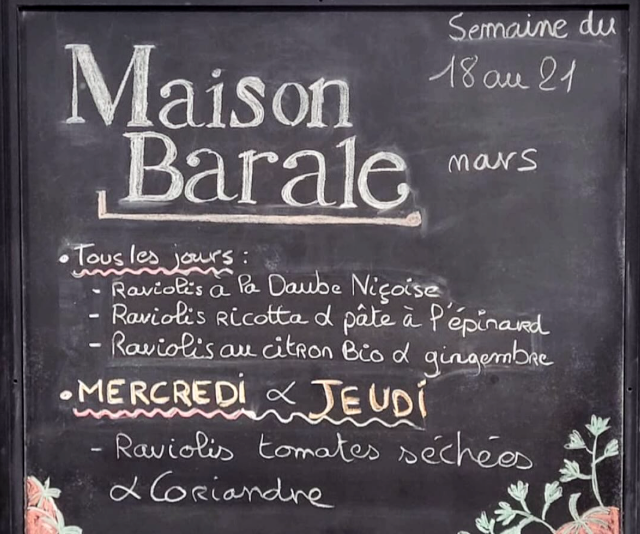 Semaine du
18 au 21
mars
Maison
Barale
• Tous les jours :
- Raviolis a la Daube Niçoise
- Raviolis Ricotta & pâte à l'épinard
- Raviolis au citron Bio & gingembre
• MERCREDI & JEUDI
- Raviolis tomates séchées
& Coriandre